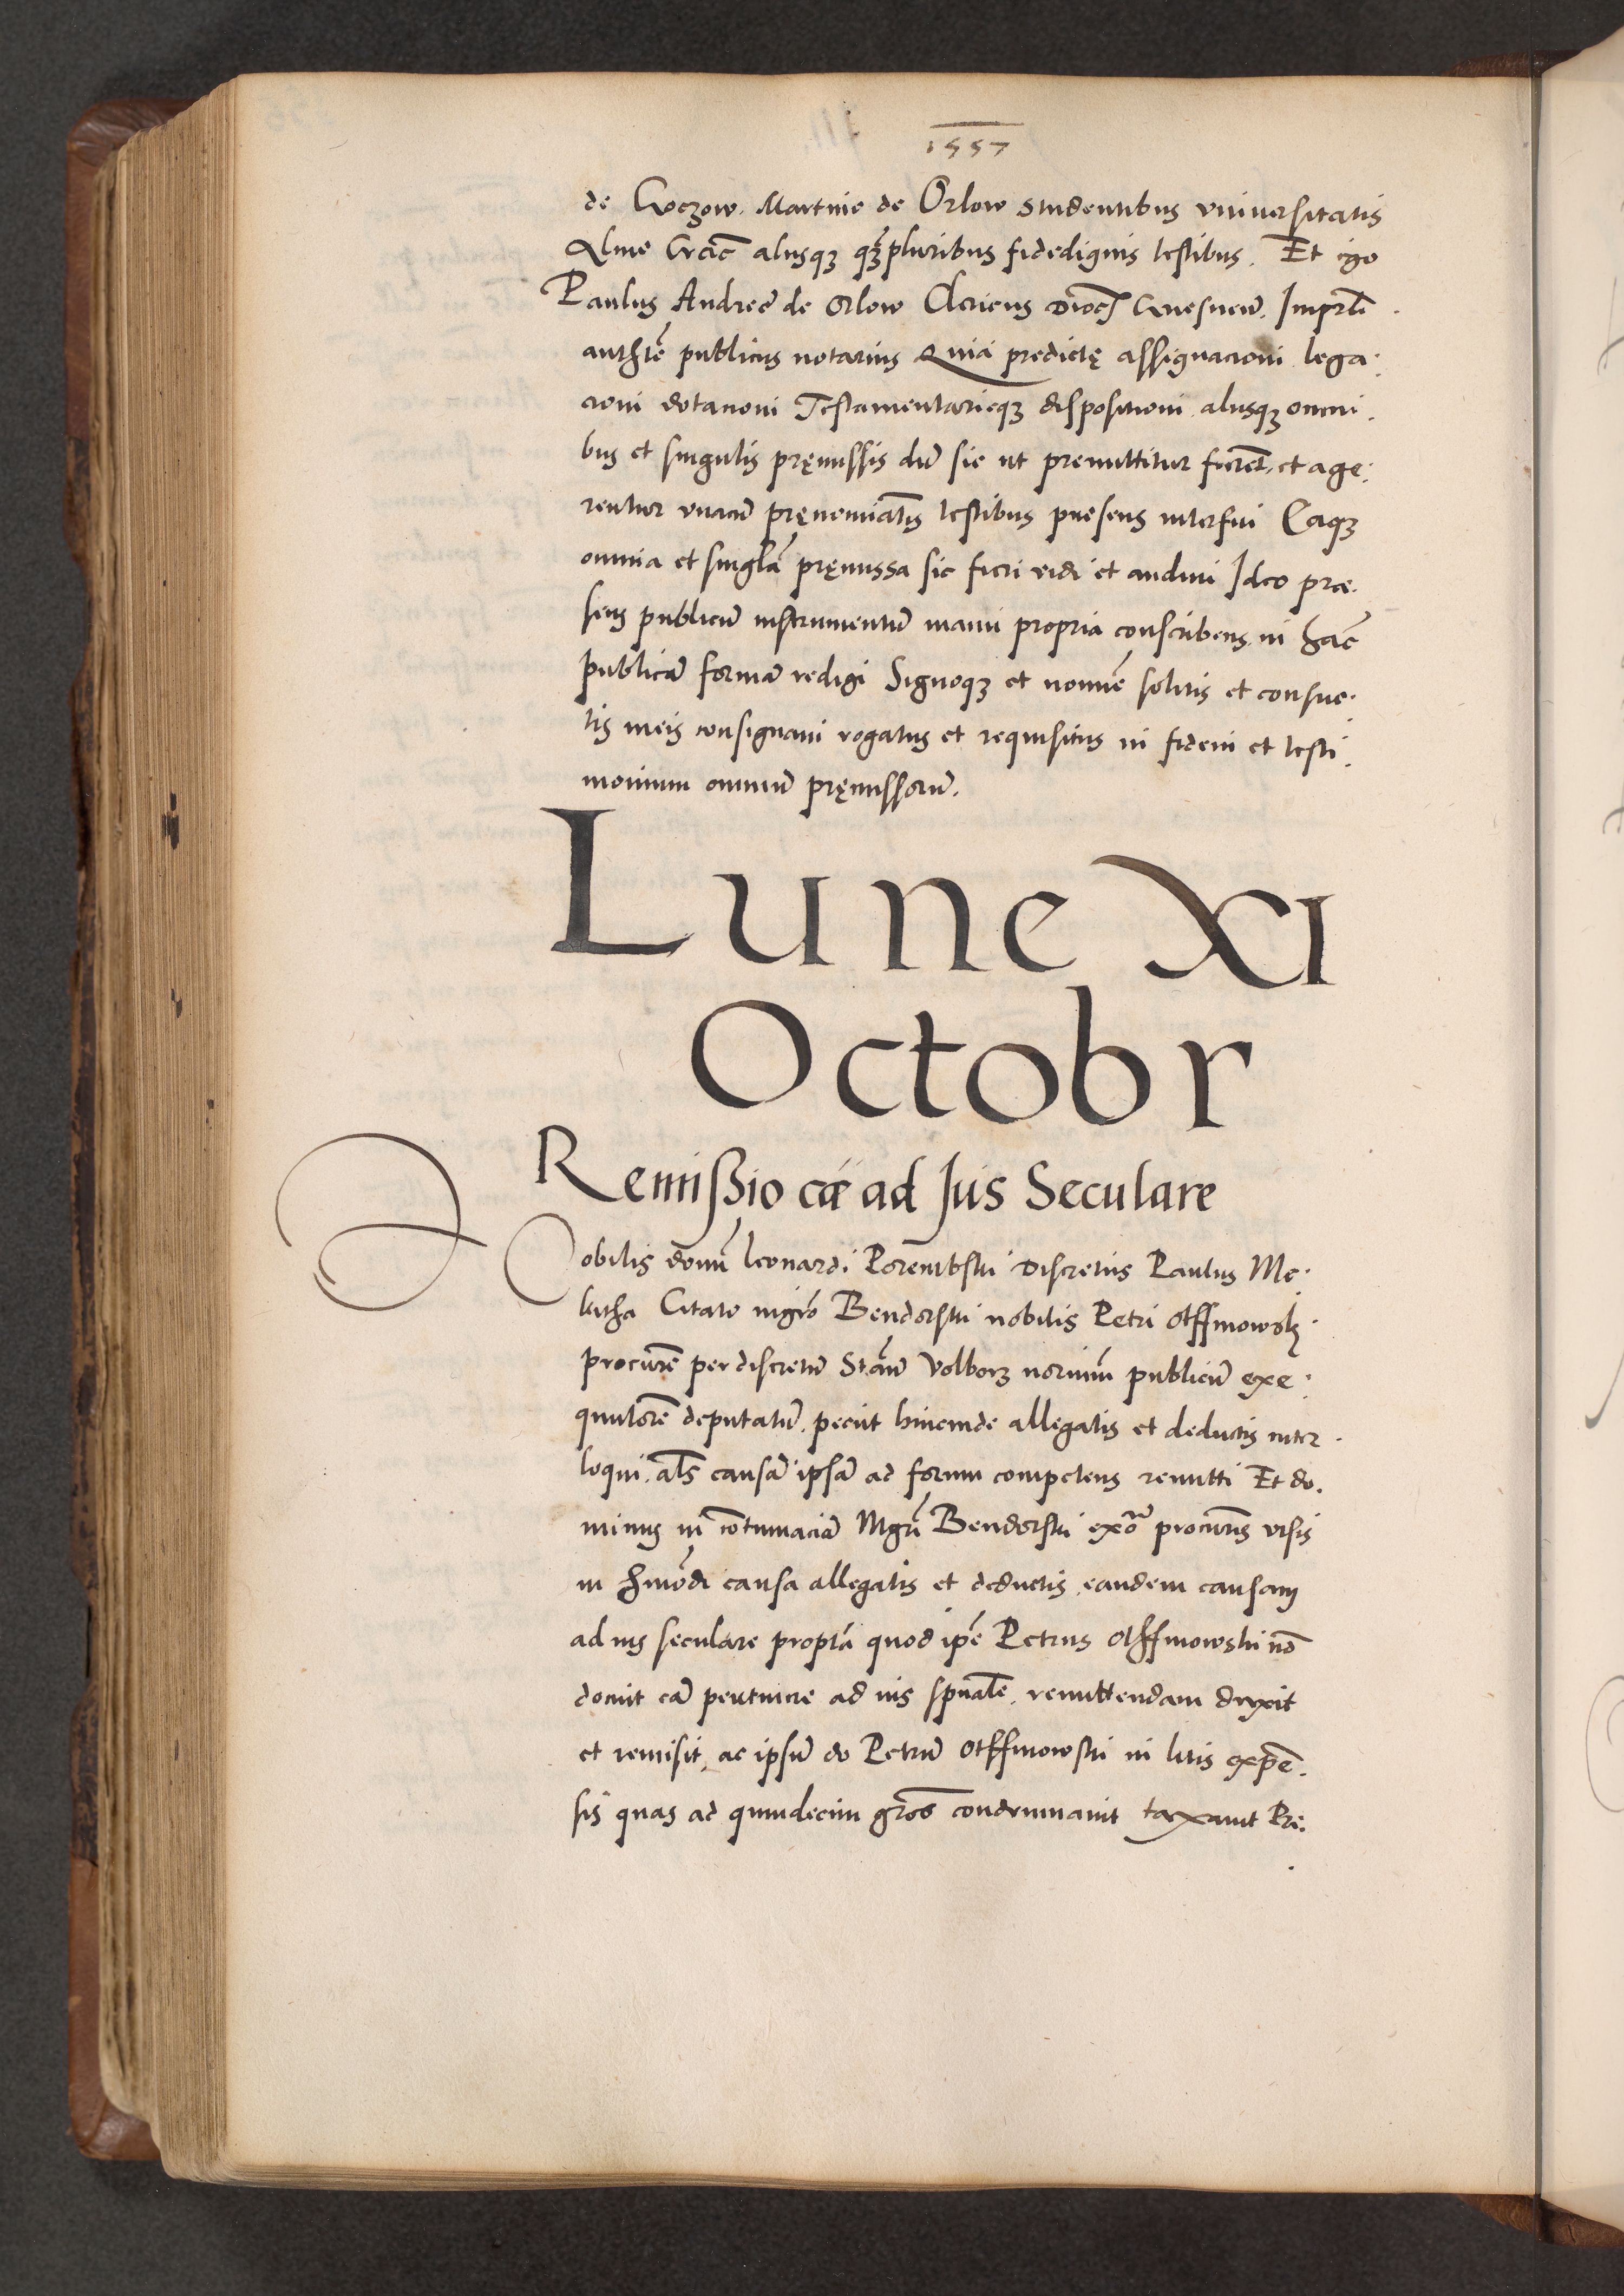 1557
de Goczow. Martino de Orlow studentibus vniversitatis
Alme Crac̄ aliisqz qz̄pluribus fidedignis testibus. Et ego
Paulus Andreę de Orlow Clericus Dioc̄ Gnesnen̄. Imprli
auth̄te publicus notarius Quia predictę assignacioni lega.
cioni dotacioni Testamentarieqz dispositioni aliisqz omni.
bus et singulis pręmissis dū sic ut premittitur fierēt, et age.
rentur vnacū pręnomiātis testibus presens interfui Eaqz
omnia et singlā pręmissa sic fieri vidi et audivi Ideo præ.
sens publicū instrumentū manu propria conscribens in hāc
publicā formā redigi Signoqz et nomīe solitis et consue.
tis meis consignavi rogatus et requisitus in fidem et testi.
monium omniū pręmissorū.
Lune XI
Octobr
Remißio cæ ad Jus Seculare
Nobilis domī Leonardi Porembski Discretus Paulus Me.
litha Citato mgrō Bendorski nobilis Petri
procurē per discretū Stānū Volborz noriūm publicū exe.
quutorē deputatū. peciit hincinde allegatis et deductis inter.
loqui. als causā ipsā ad forum competens remitti Et do.
minus in cōtumaciā Mgrī Bendorski exōa procurīs visis
in hmōdi causa allegatis et deductis eandem causam
ad ius seculare proptā quod ipē Petrus nō
docuit eā pertinere ad ius spūale. remittendam duxit
et remisit, ac ipsū do Petrū in litis expē.
sis quas ad quindecim gros condemnavit taxavit Prę.